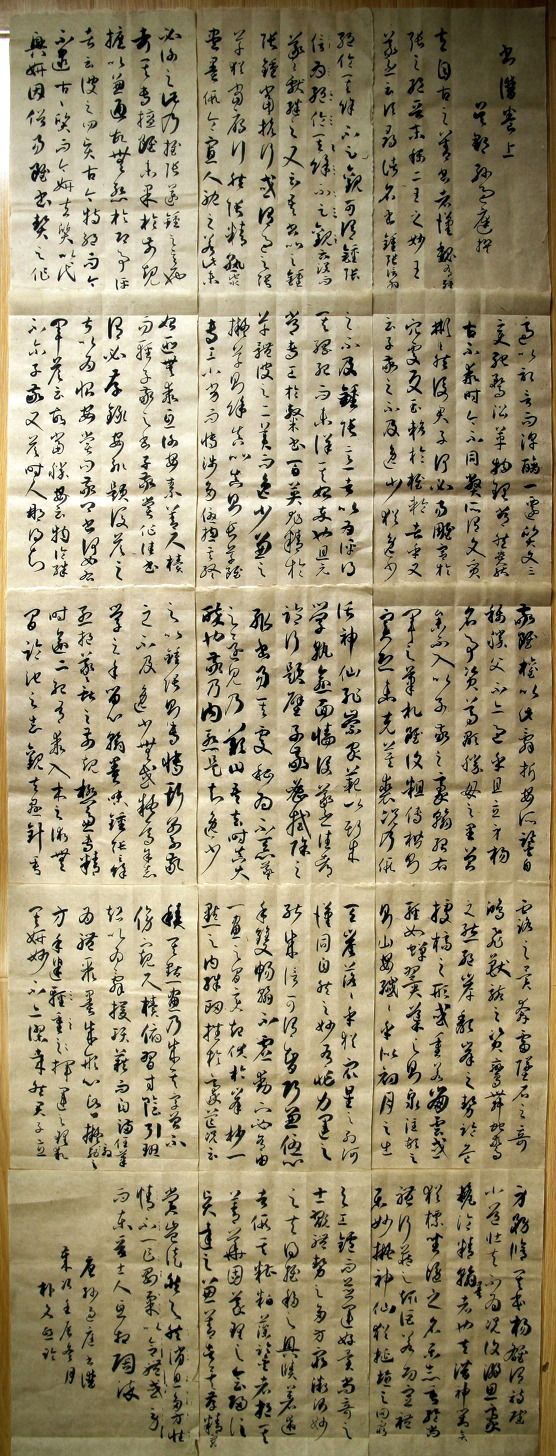 書譜卷上
吳郡孫過庭撰
夫自古之善書者漢魏有鍾
張之絕晉末稱二王之妙王
羲之云頃尋諸名書鍾張信為
絕倫其餘不足觀可謂鍾張
信為絕倫其餘不足觀云沒而
羲獻繼之又云吾書比之鍾
張鍾當抗行或謂過之張
草猶當鴈行然張精熟池水
盡墨假令寡人耽之若此未
必謝之此乃推張邁鍾之意也
考其專擅雖未果於前規
摭以兼通故無慚於即事評
者云彼之四賢古今特絕而今
不逮古古質而今妍夫質以代
興妍因俗易雖書契之作
適以記言而淳醨一遷質文三
變馳騖沿革物理常然貴能
古不乖時今不同弊所謂文質
彬彬然後君子何必易雕宮於
穴處反玉輅於椎輪者乎又
云子敬之不及逸少猶逸少
之不及鍾張意者以為評得
其綱紀而未詳其始卒也且元
常專工於隸書百英尤精於
草體彼之二美而逸少兼之
擬草則餘真比真則長草雖
專工小劣而博涉多優揔其終
始匪無乖互謝安素善尺牘
而輕子敬之書子敬嘗作佳書
與之謂必存錄安輒題後答之
甚以為恨安嘗問敬卿書何如右
軍答云故當勝安云物論殊
不爾子敬又答時人那得知
敬雖權以此辭折安所鑒自
稱勝父不亦過乎且立身揚
名事資尊顯勝母之里曾
參不入以子敬之豪翰紹右
軍之筆札雖復粗傳楷則
實恐未克箕裘況乃假
託神仙恥崇家範以斯成
學孰愈面牆後羲之往都
臨行題壁子敬密拭除之
輒書易其處私為不忝羲
之還見乃歎曰吾去時真大
醉也敬乃內慚是知逸少
之比鍾張則專博斯別子敬
之不及逸少無或疑焉余志
學之年留心翰墨味鍾張之餘
烈挹羲獻之前規極慮專精
時逾二紀有乖入木之術無
間臨池之志觀夫懸針垂
露之異奔雷墜石之奇
鴻飛獸駭之資鸞舞蛇驚
之態絕岸頹峰之勢臨危
據槁之形或重若崩雲或
輕如蟬翼導之則泉注頓之
則山安纖纖乎似初月之出
天崖落落乎猶眾星之列河
漢同自然之妙有非力運之
能成信可謂智巧兼優心
手雙暢翰不虛動下必有由
一畫之間變起伏於峯杪一
點之內殊衄挫於豪芒況云
積其點畫乃成其字曾不
傍窺尺牘俯習寸陰引班
超以為辭援項籍而自滿任筆
為體聚墨成形心昏擬效之
方手迷揮運之理求
其妍妙不亦謬哉然君子立
身務修其本楊雄謂詩賦
小道壯夫不為況復溺思豪
氂淪精翰墨者也夫潛神對奕
猶標坐隱之名樂志垂綸尚
體行藏之趣詎若功宣禮
樂妙擬神仙猶埏埴之罔窮與
工鑪而並運好異尚奇之
士翫體勢之多方窮微測妙
之夫得推移之奧賾著述
者假其糟粕藻鑒者挹其
菁華固義理之會歸信
賢達之兼善者矣存精寓
賞豈徒然
而東晉士人互相陶淬
唐孫過庭書譜
壬辰冬月